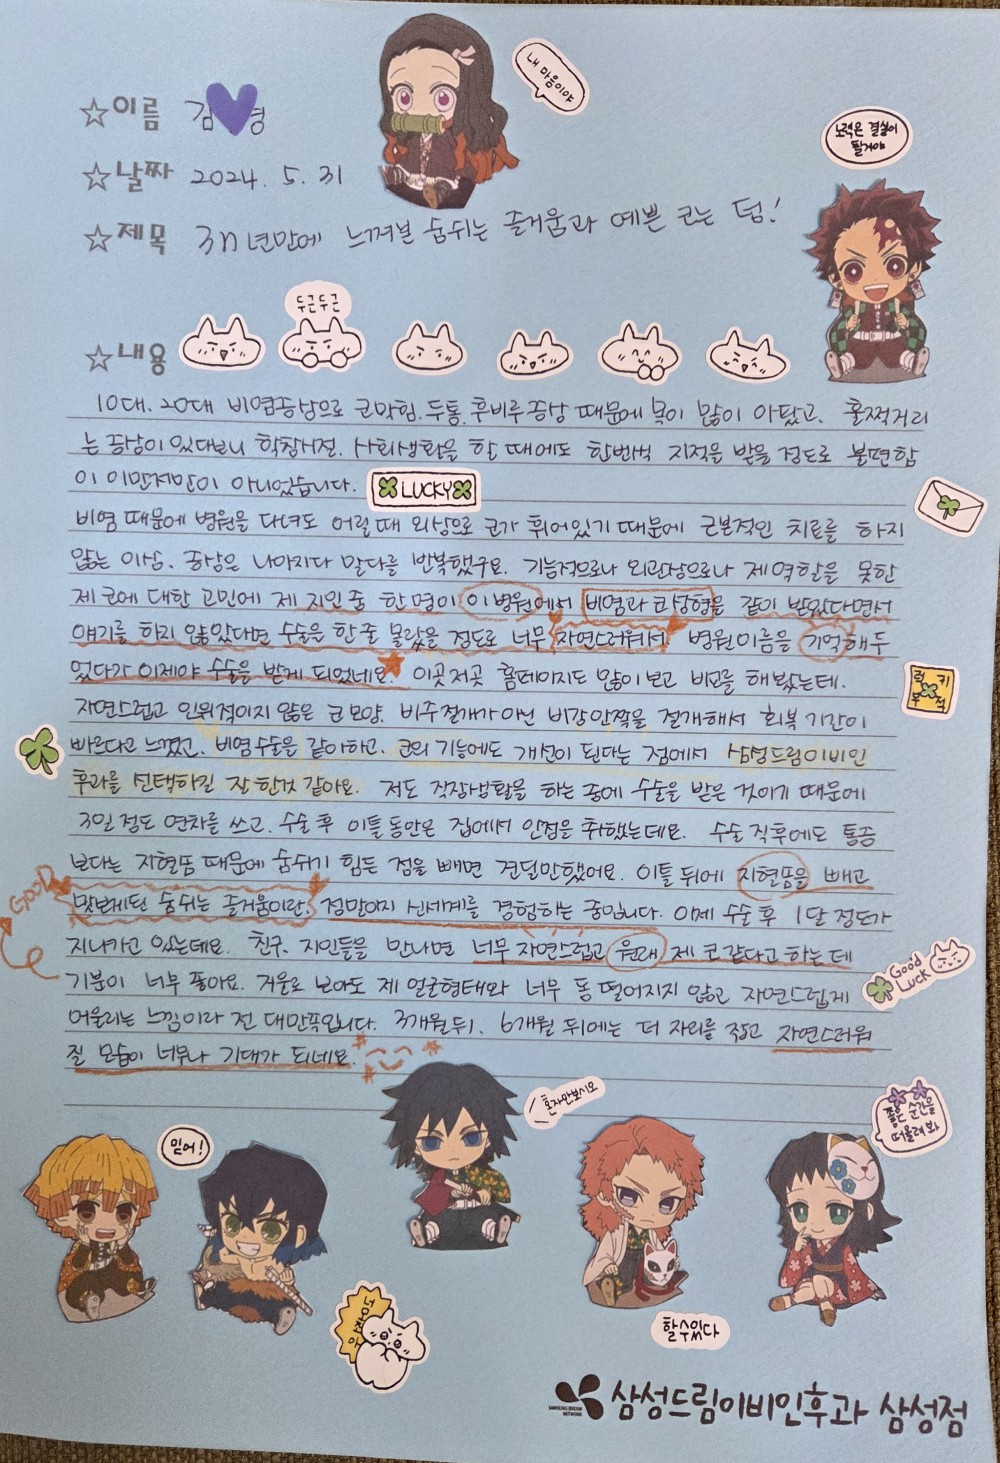 내 마음이야
☆이름 김♥영
노력은 결실이 될거야
☆날짜 2024. 5. 31
☆제목 3n년만에 느껴본 숨쉬는 즐거움과 예쁜 코는 덤!
두근두근
☆내용
10대, 20대 비염증상으로 코막힘, 두통, 후비루 증상 때문에 목이 많이 아팠고, 훌쩍거리
는 증상이 있다보니 학창시절, 사회생활을 할 때에도 한번씩 지적을 받을 정도로 불편함
이 이만저만이 아니었습니다.
LUCKY
비염 때문에 병원을 다녀도 어릴때 외상으로 코가 휘어있기 때문에 근본적인 치료를 하지
않는 이상, 증상은 나아지다 말다를 반복했구요. 기능적으로나 외관상으로나 제 역할을 못한
제 코에 대한 고민에 제 지인 중 한명이 이 병원에서 비염과 코성형을 같이 받았다면서
얘기를 하지 않았다면 수술은 한 줄 몰랐을 정도로 너무 자연스러워서 병원이름을 기억해두
었다가 이제야 수술을 받게 되었네요. 이곳저곳 홈페이지도 많이 보고 비교를 해봤는데,
럭키
부적
자연스럽고 인위적이지 않은 코 모양, 비주 절개가 아닌 비강 안쪽을 절개해서 회복 기간이
빠르다고 느꼈고, 비염수술은 같이하고, 코의 기능에도 개선이 된다는 점에서 삼성드림이비인
후과를 선택하길 잘 한것 같아요. 저도 직장생활을 하는 중에 수술을 받은 것이기 때문에
3일 정도 연차를 쓰고, 수술 후 이틀 동안은 집에서 안정을 취했는데요. 수술 직후에도 통증
보다는 지혈솜 때문에 숨쉬기 힘든 점을 빼면 견딜만했어요. 이틀 뒤에 지혈솜을 빼고
GOOD
맛보게된 숨쉬는 즐거움이란, 정말이지 신세계를 경험하는 중입니다. 이제 수술 후 1달 정도가
지나가고 있는데요. 친구, 지인들을 만나면 너무 자연스럽고 원래 제 코 같다고 하는데
Good Luck
기분이 너무 좋아요. 거울로 보아도 제 얼굴형태와 너무 동 떨어지지 않고 자연스럽게
어울리는 느낌이라 전 대만족입니다. 3개월 뒤, 6개월 뒤에는 더 자리를 잡고 자연스러워
질 모습이 너무나 기대가 되네요.
혼자만보시오
좋은 순간을
떠올려 봐
믿어!
할수있다
SAMSUNG DREAM NETWORK
삼성드림이비인후과 삼성점